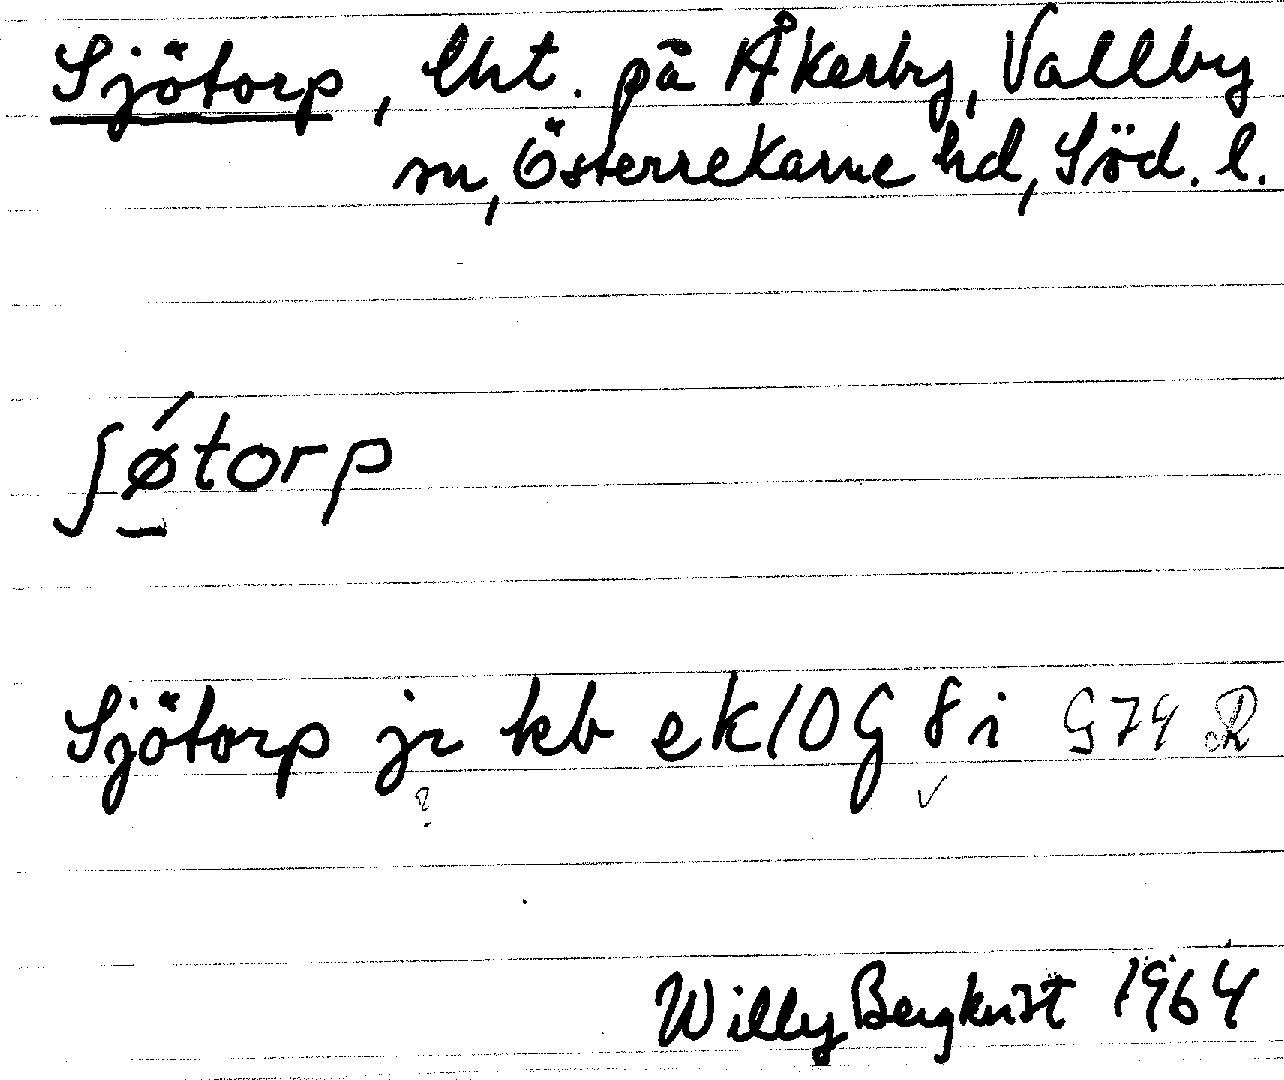 Sjötorp, lht. på Åkerby, Vallby
sn, Österrekarne hd, Söd. l.
ʃǿ̠torp
Sjötorp jr kb ek 10G 8i G74 R
? ✓
Willy Bergkvist 1964